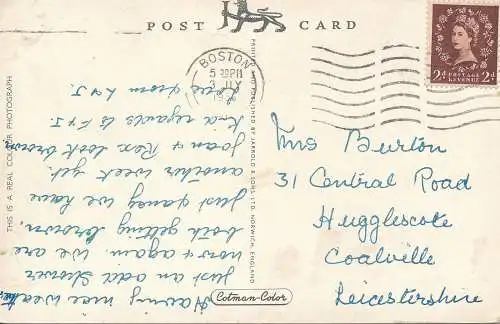 POST CARD
BOSTON
POSTAGE REVENUE
2D 2D
THIS IS A REAL COLOUR PHOTOGRAPH
PRINTED AND PUBLISHED BY JARROLD & SONS LTD. NORWICH, ENGLAND
Having nice weather,
just an odd shower
now & again. We are
both getting brown.
Just fancy we have
another week yet.
Joan & Rex look brown
regards to
Love from
Cotman-Color
Mrs Burton
31 Central Road
Hugglescote
Coalville
Leicestershire